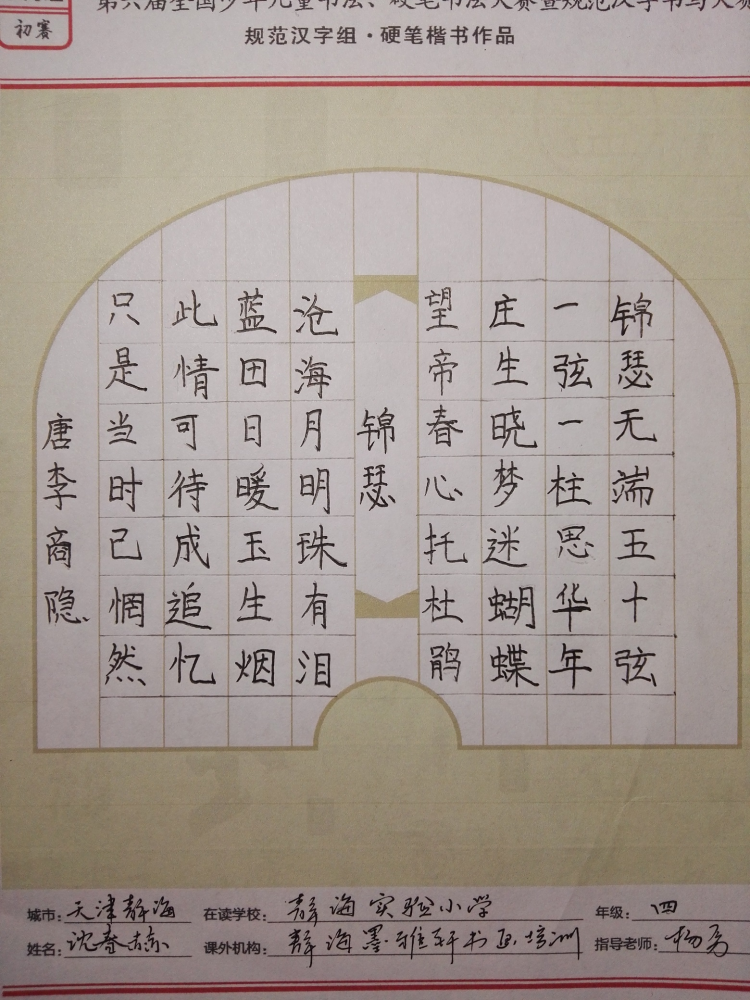 初赛
第六届全国少年儿童书法、硬笔书法大赛暨规范汉字书写大赛
规范汉字组·硬笔楷书作品
锦瑟无端五十弦
一弦一柱思华年
庄生晓梦迷蝴蝶
望帝春心托杜鹃
锦瑟
沧海月明珠有泪
蓝田日暖玉生烟
此情可待成追忆
只是当时已惘然
唐李商隐
城市: 天津静海 在读学校: 静海实验小学 年级: 四
姓名: 沈春赫 课外机构: 静海墨雅轩书画培训 指导老师: 杨勇